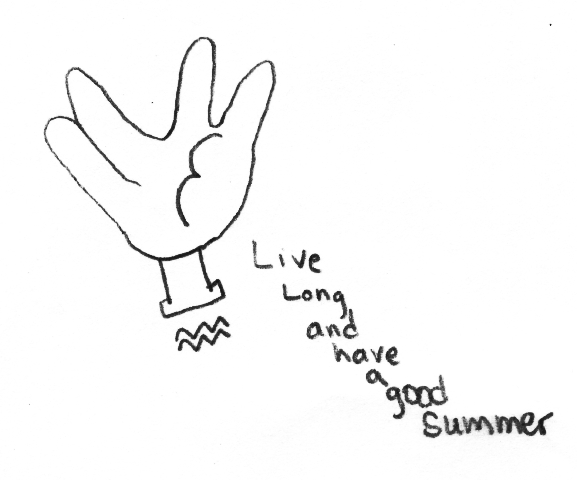 Live
Long
and
have
a
good
Summer